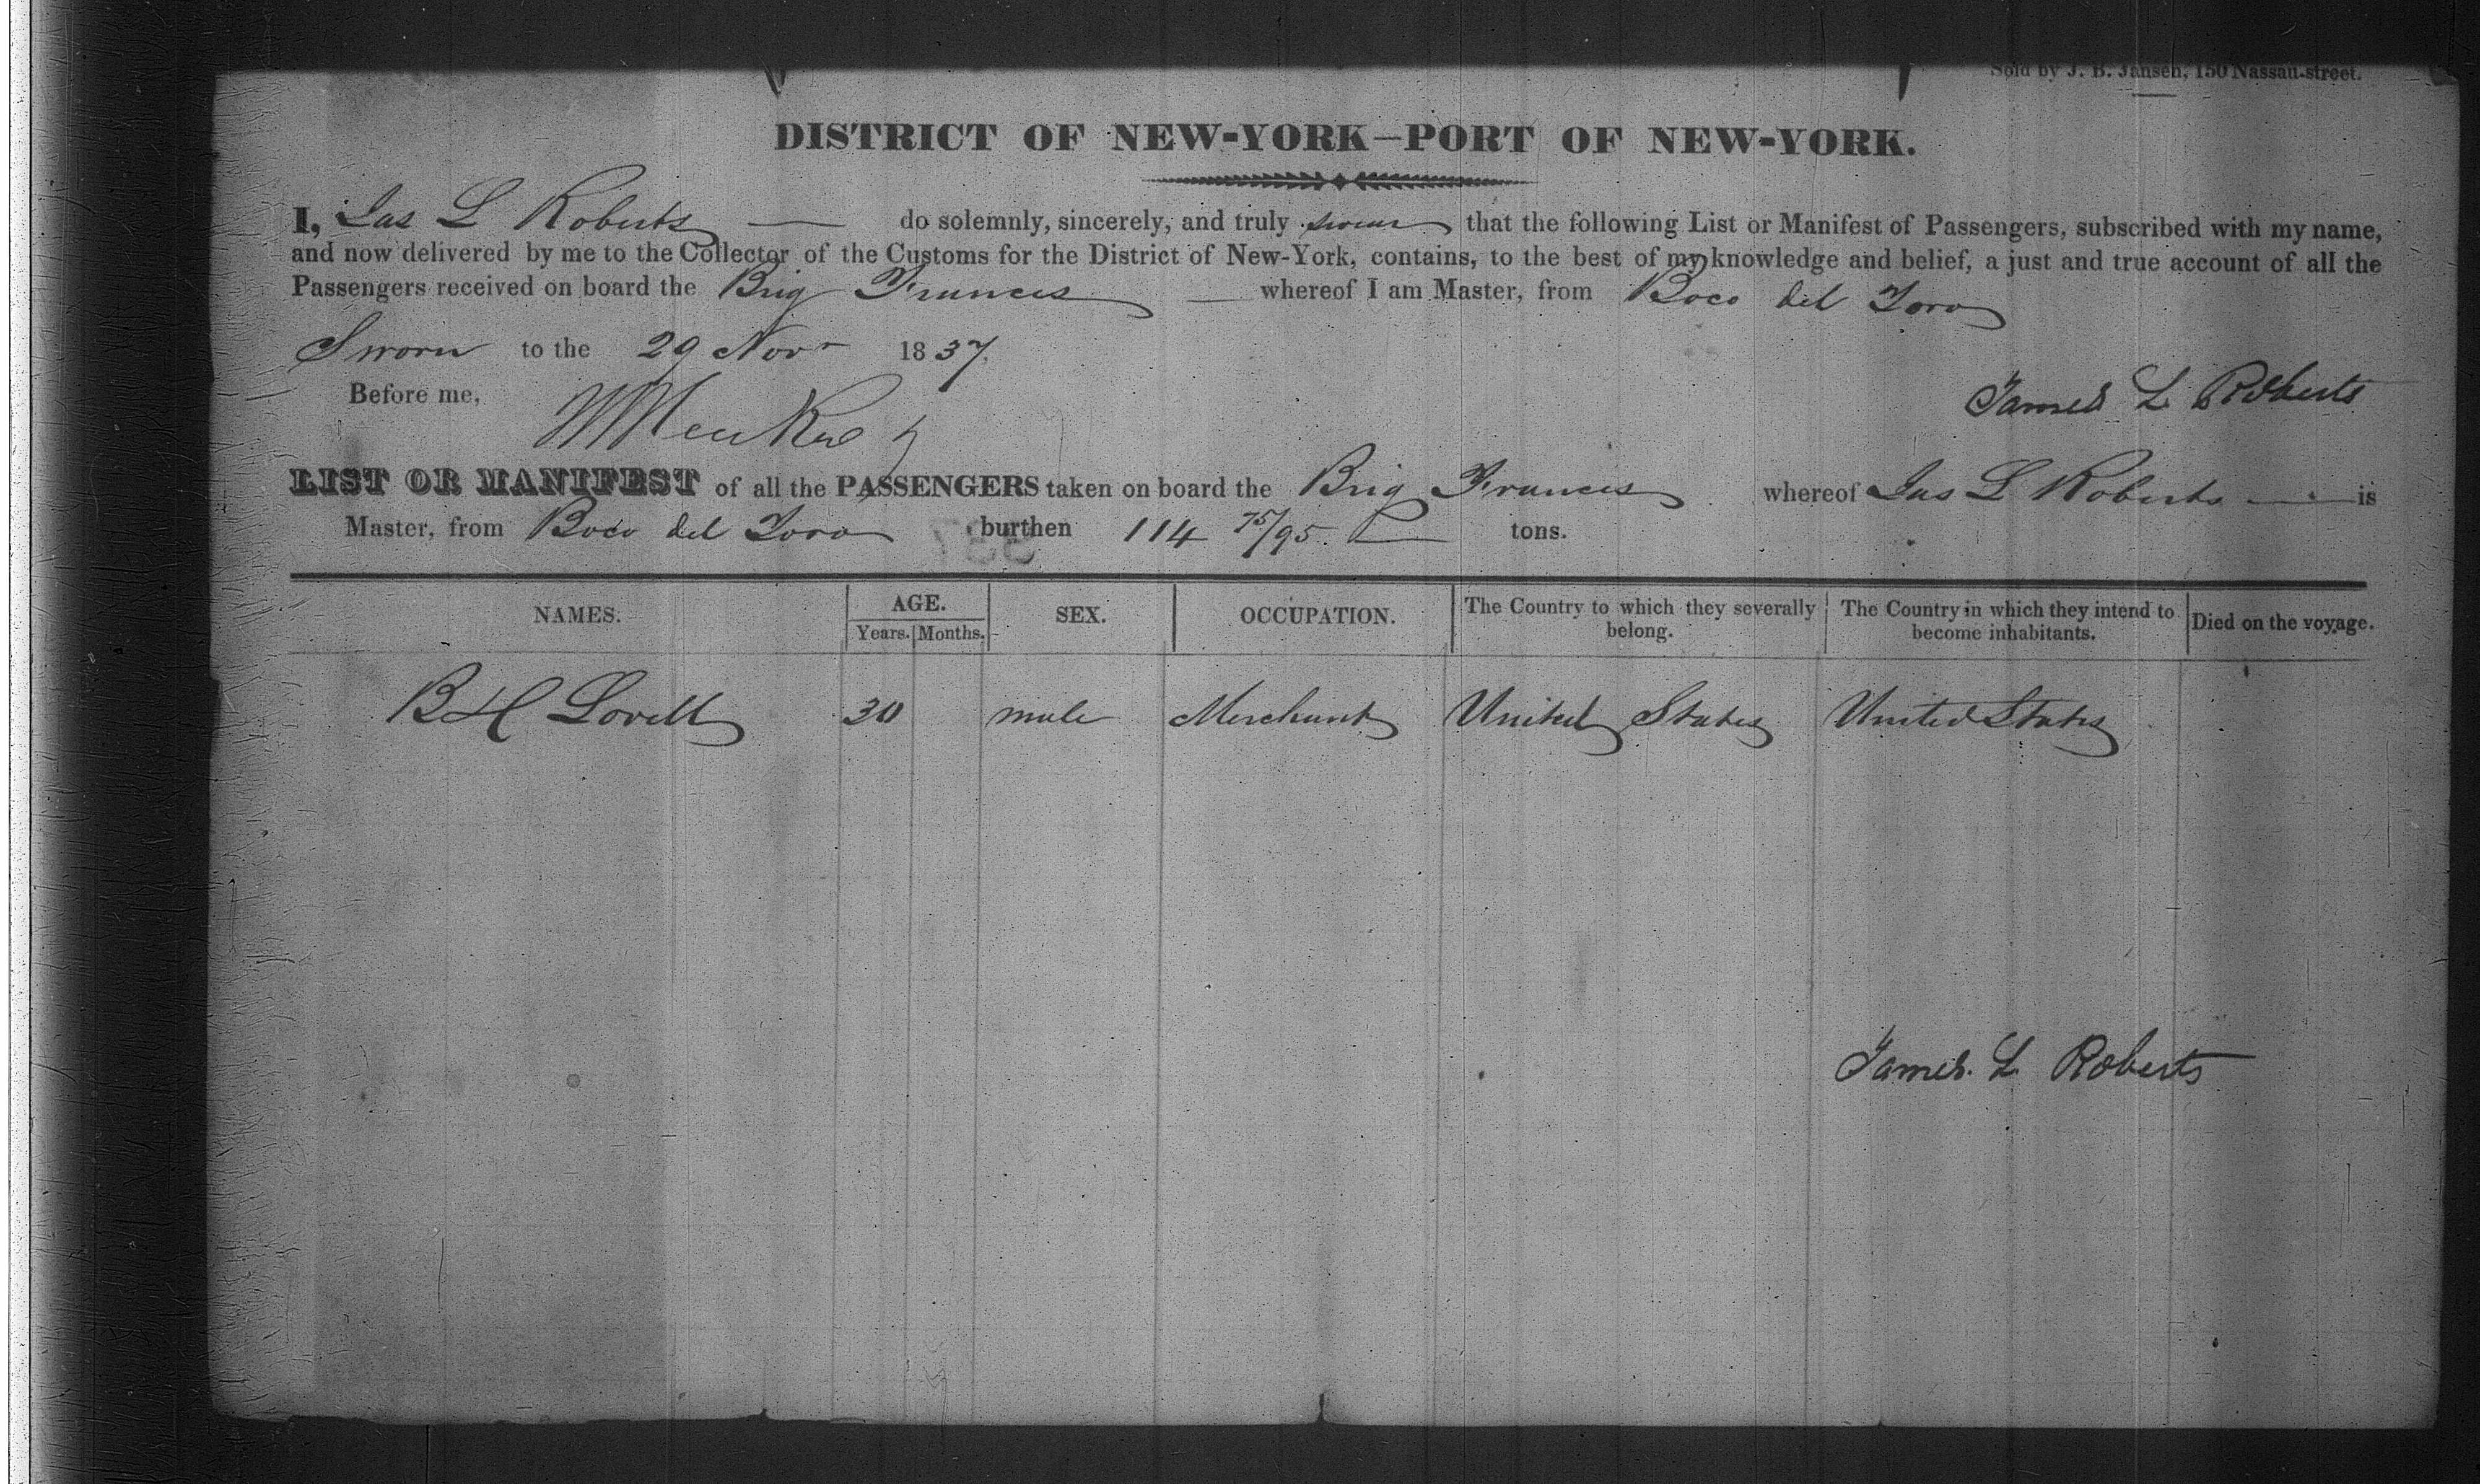 Sold by J. B. Jansen, 150 Nassau-street.
DISTRICT OF NEW-YORK—PORT OF NEW-YORK.
I, Jas L Roberts — do solemnly, sincerely, and truly swear that the following List or Manifest of Passengers, subscribed with my name,
and now delivered by me to the Collector of the Customs for the District of New-York, contains, to the best of my knowledge and belief, a just and true account of all the
Passengers received on board the Brig Frances — whereof I am Master, from Boco del Toro
Sworn to the 29 Novr 1837.
James L Roberts
Before me,
LIST OR MANIFEST of all the PASSENGERS taken on board the Brig Frances whereof Jas L Roberts — is
Master, from Boco del Toro burthen 114 75/95 tons.
NAMES. AGE. SEX. OCCUPATION. The Country to which they severally belong. The Country in which they intend to become inhabitants. Died on the voyage.
Years. Months.
B H Lovell 30 male Merchant United States United States
James L Roberts